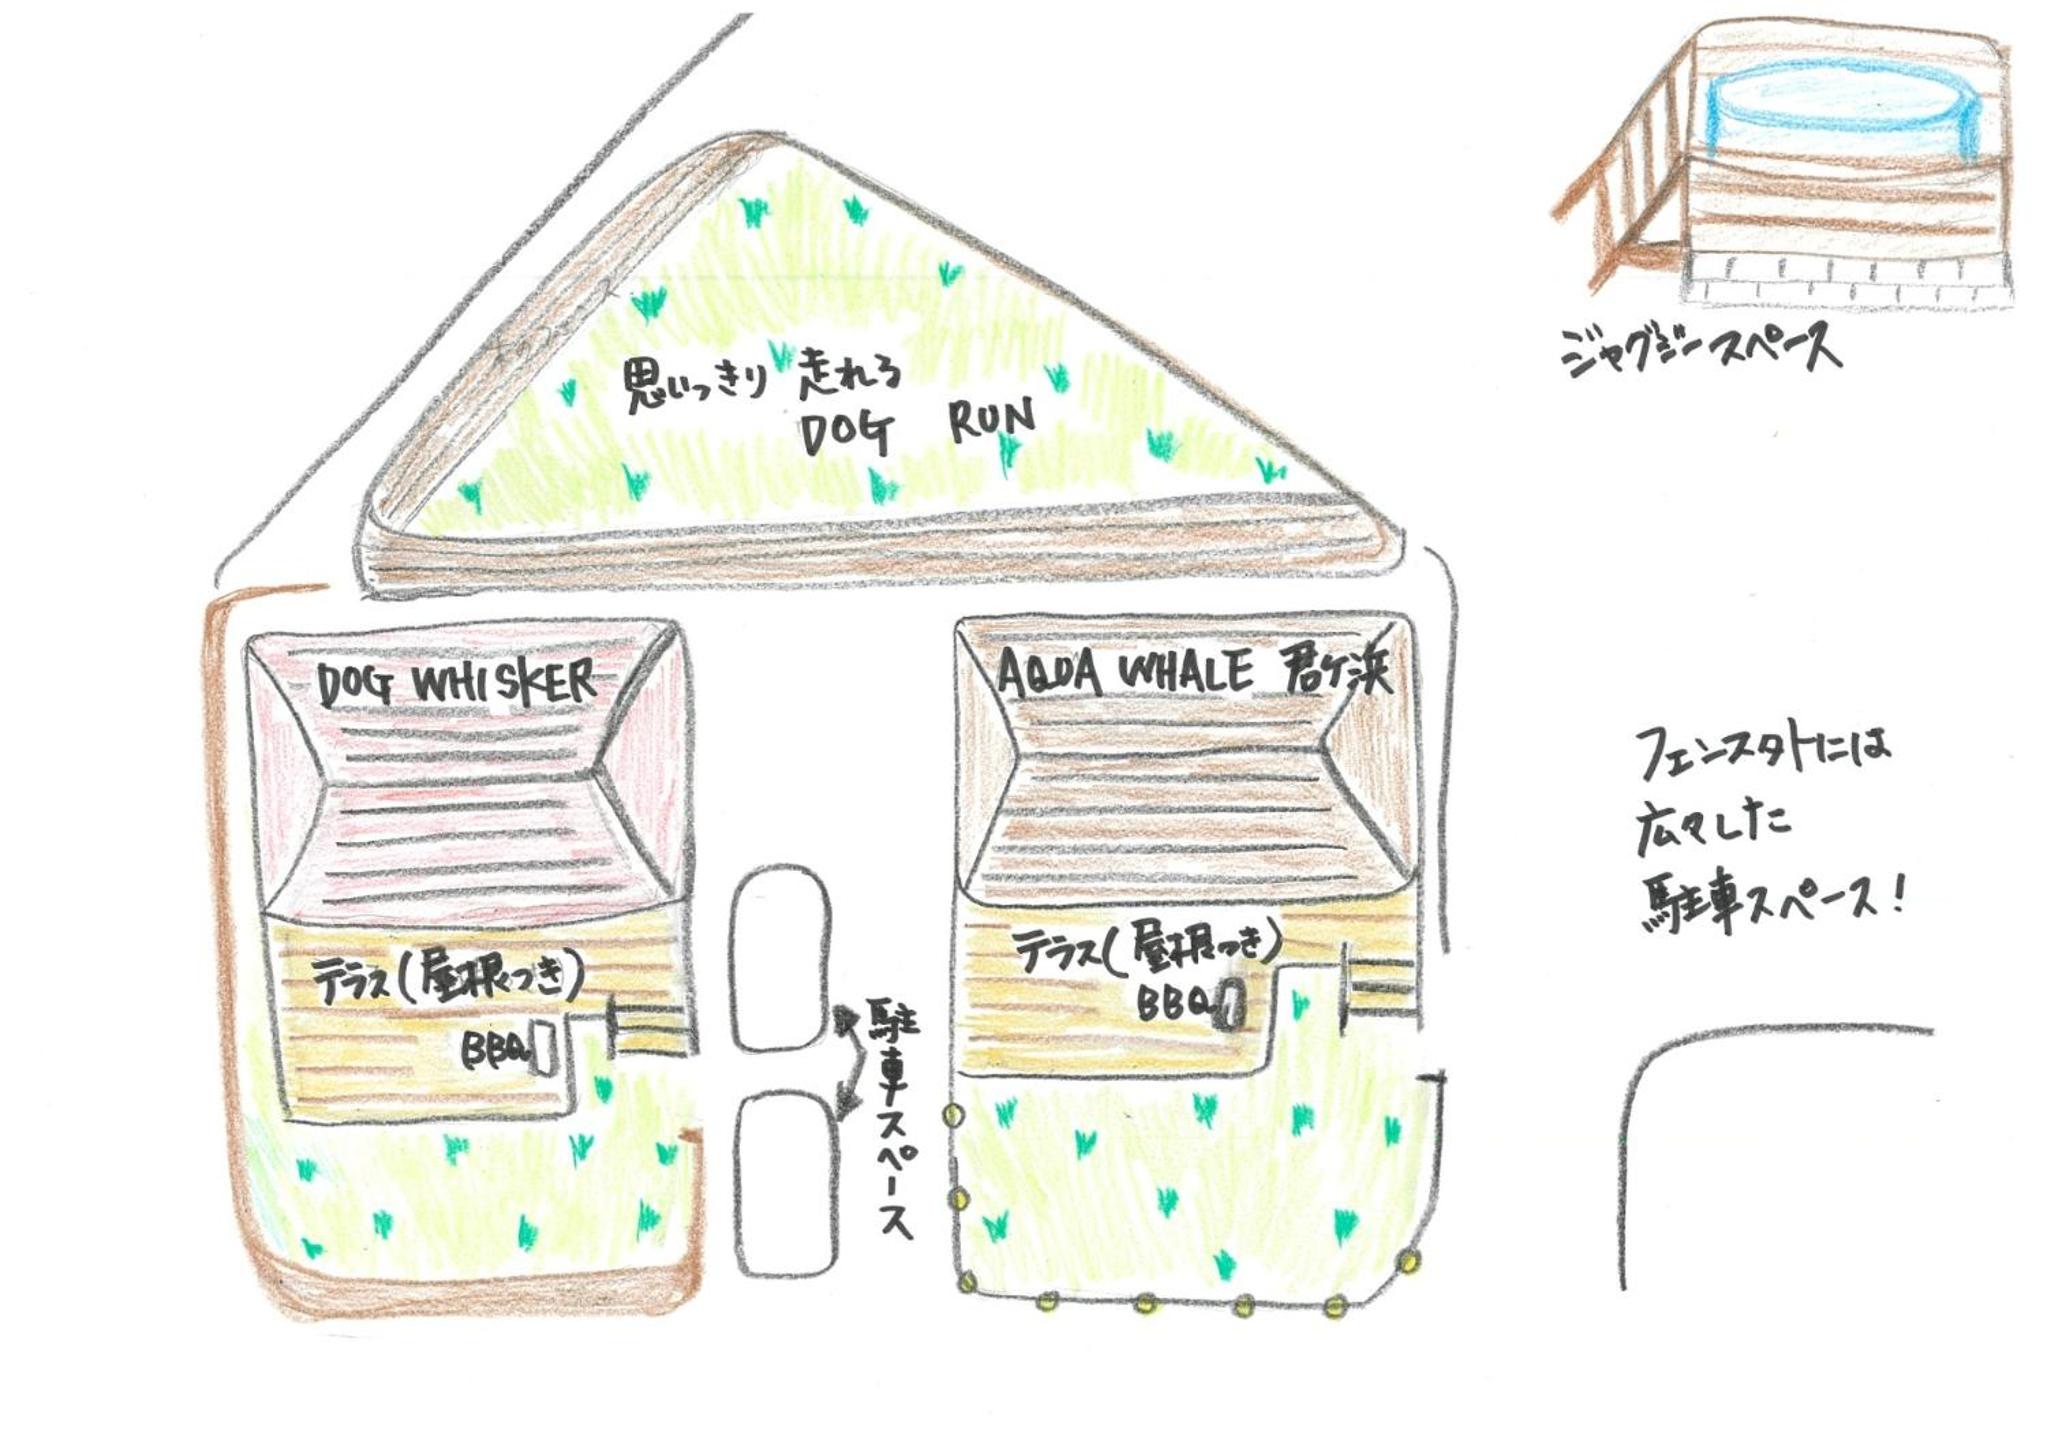 ジャグジースペース
思いっきり 走れる
DOG RUN
DOG WHISKER
AQUA WHALE 君ケ浜
テラス(屋根つき)
BBQ
テラス(屋根つき)
BBQ
駐車スペース
フェンス外には
広々した
駐車スペース!